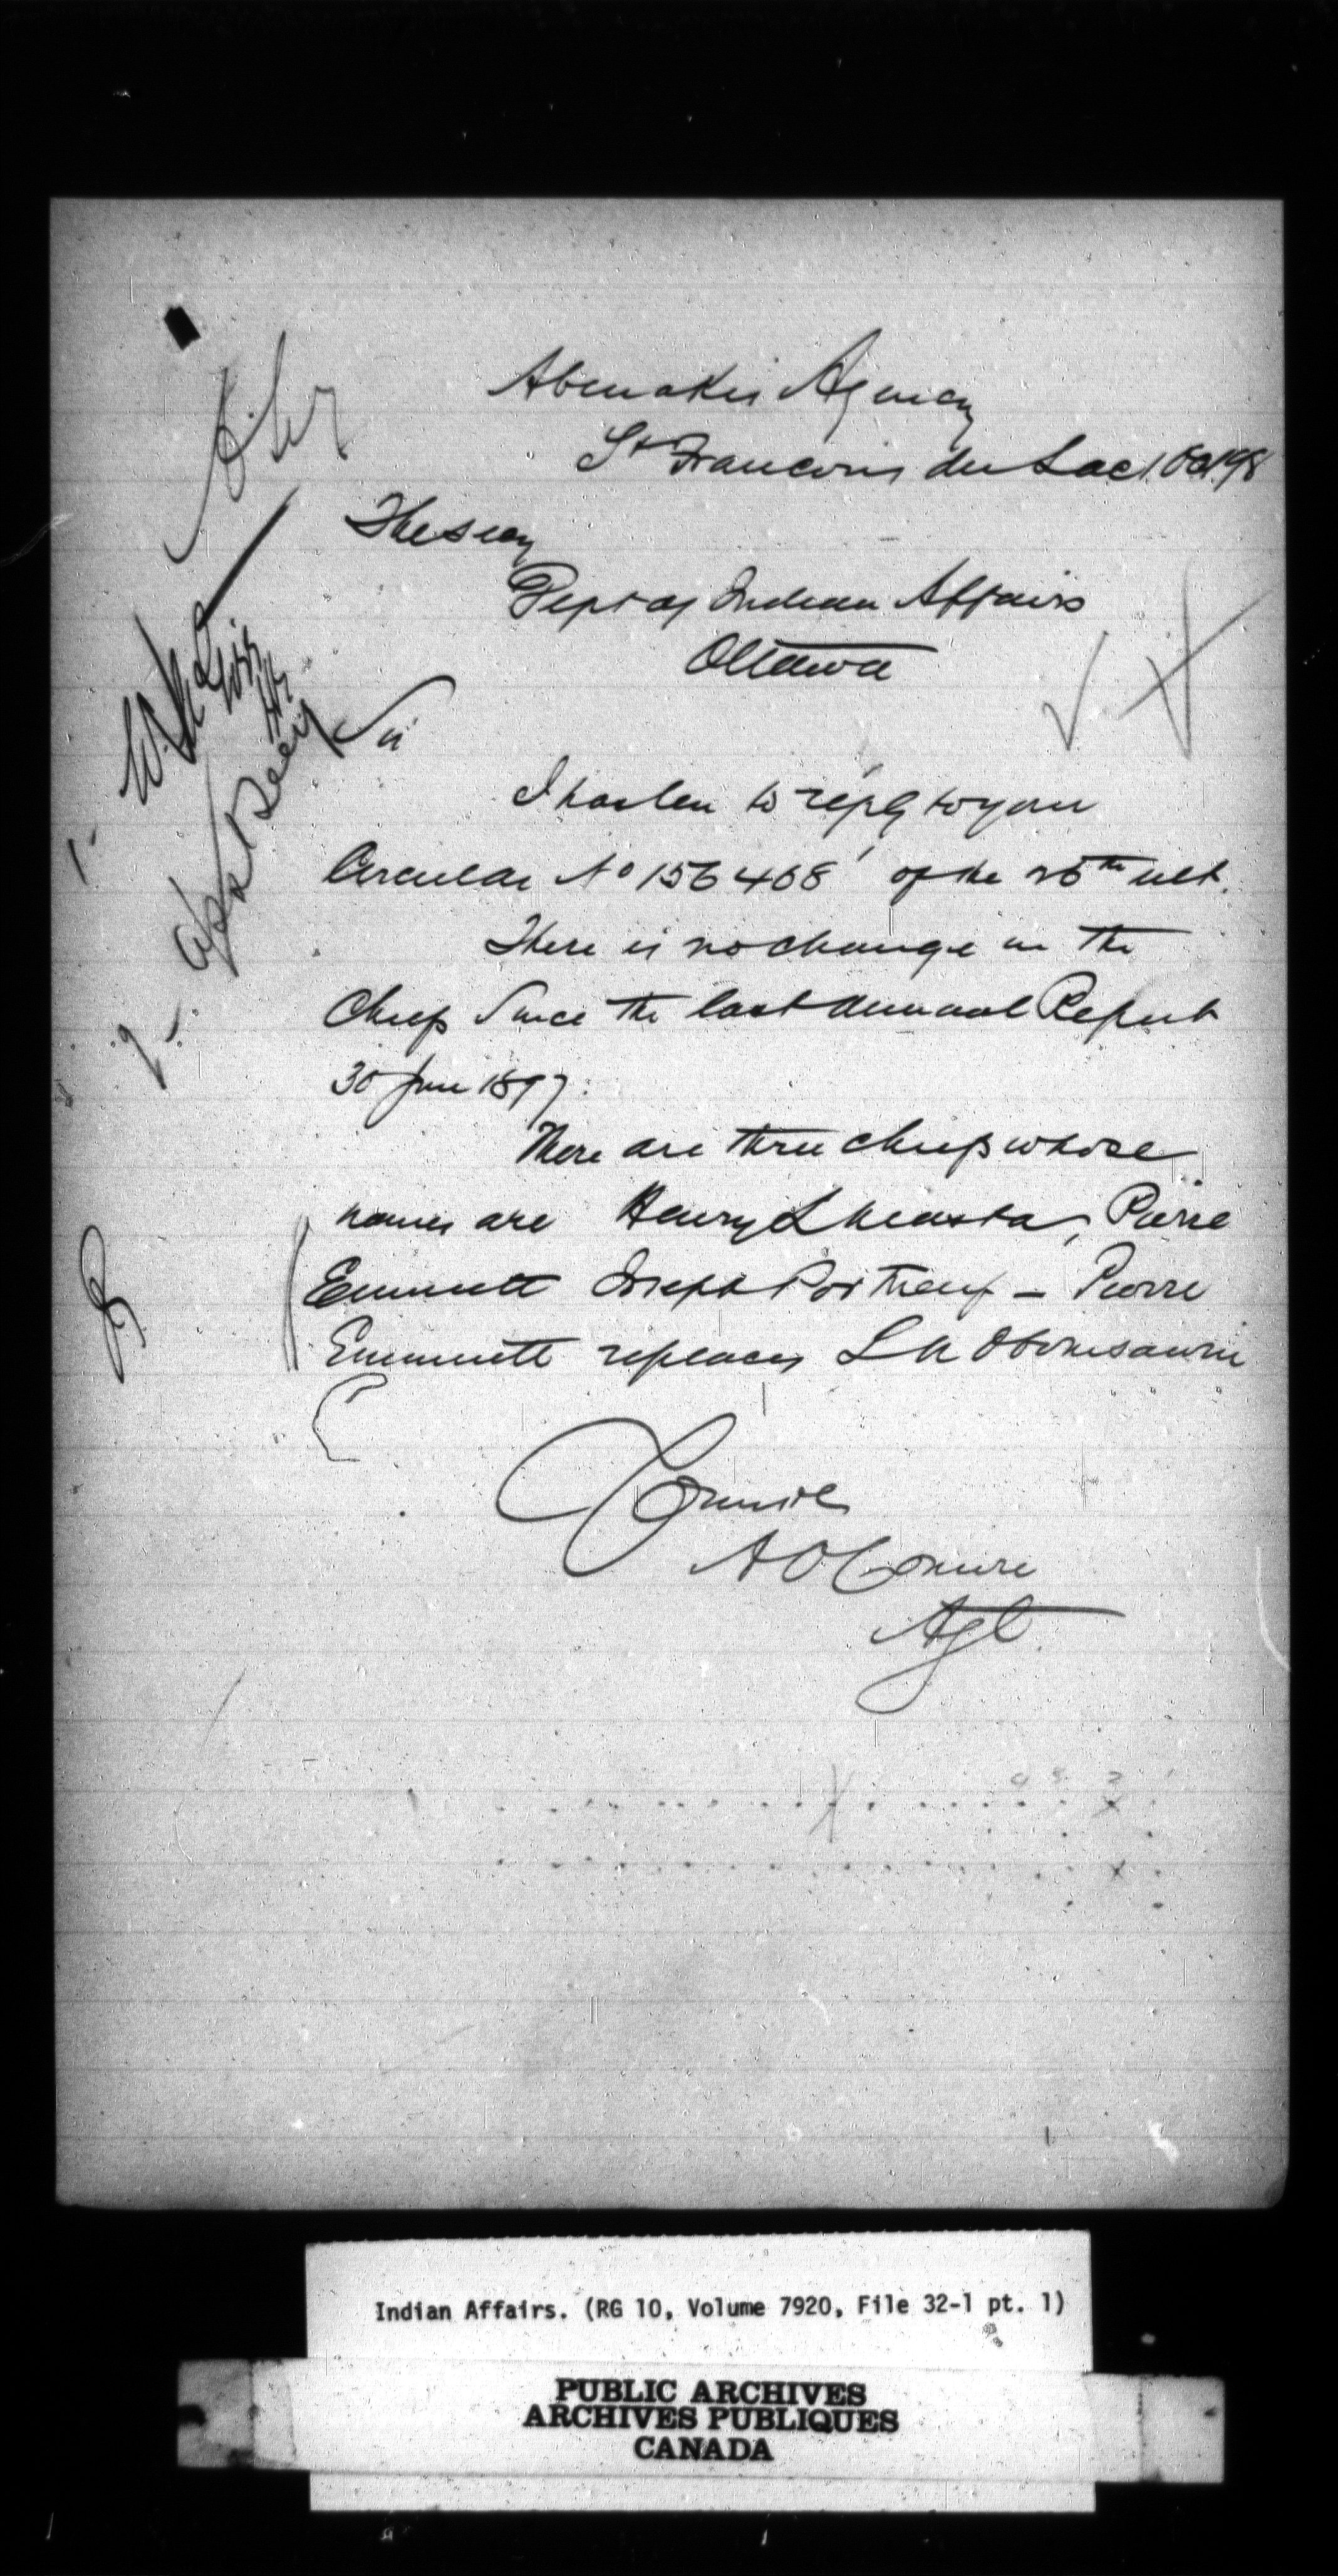 Abenakis Agency
St Francois du Lac 1. Oct. 98
The Secy
Dept of Indian Affairs
Ottawa
Sir
I hasten to reply to your
Circular No 156468 of the 26th ult.
There is no change in the
Chiefs Since the last Annual Report
30 June 1897.
There are three chiefs whose
names are Henry L Masta, Pierre
Emmett Joseph Portneuf – Pierre
Emmett replaces L N Obomsawin
A O Comire
Agt.
1.
2.
Indian Affairs. (RG 10, Volume 7920, File 32-1 pt. 1)
PUBLIC ARCHIVES
ARCHIVES PUBLIQUES
CANADA